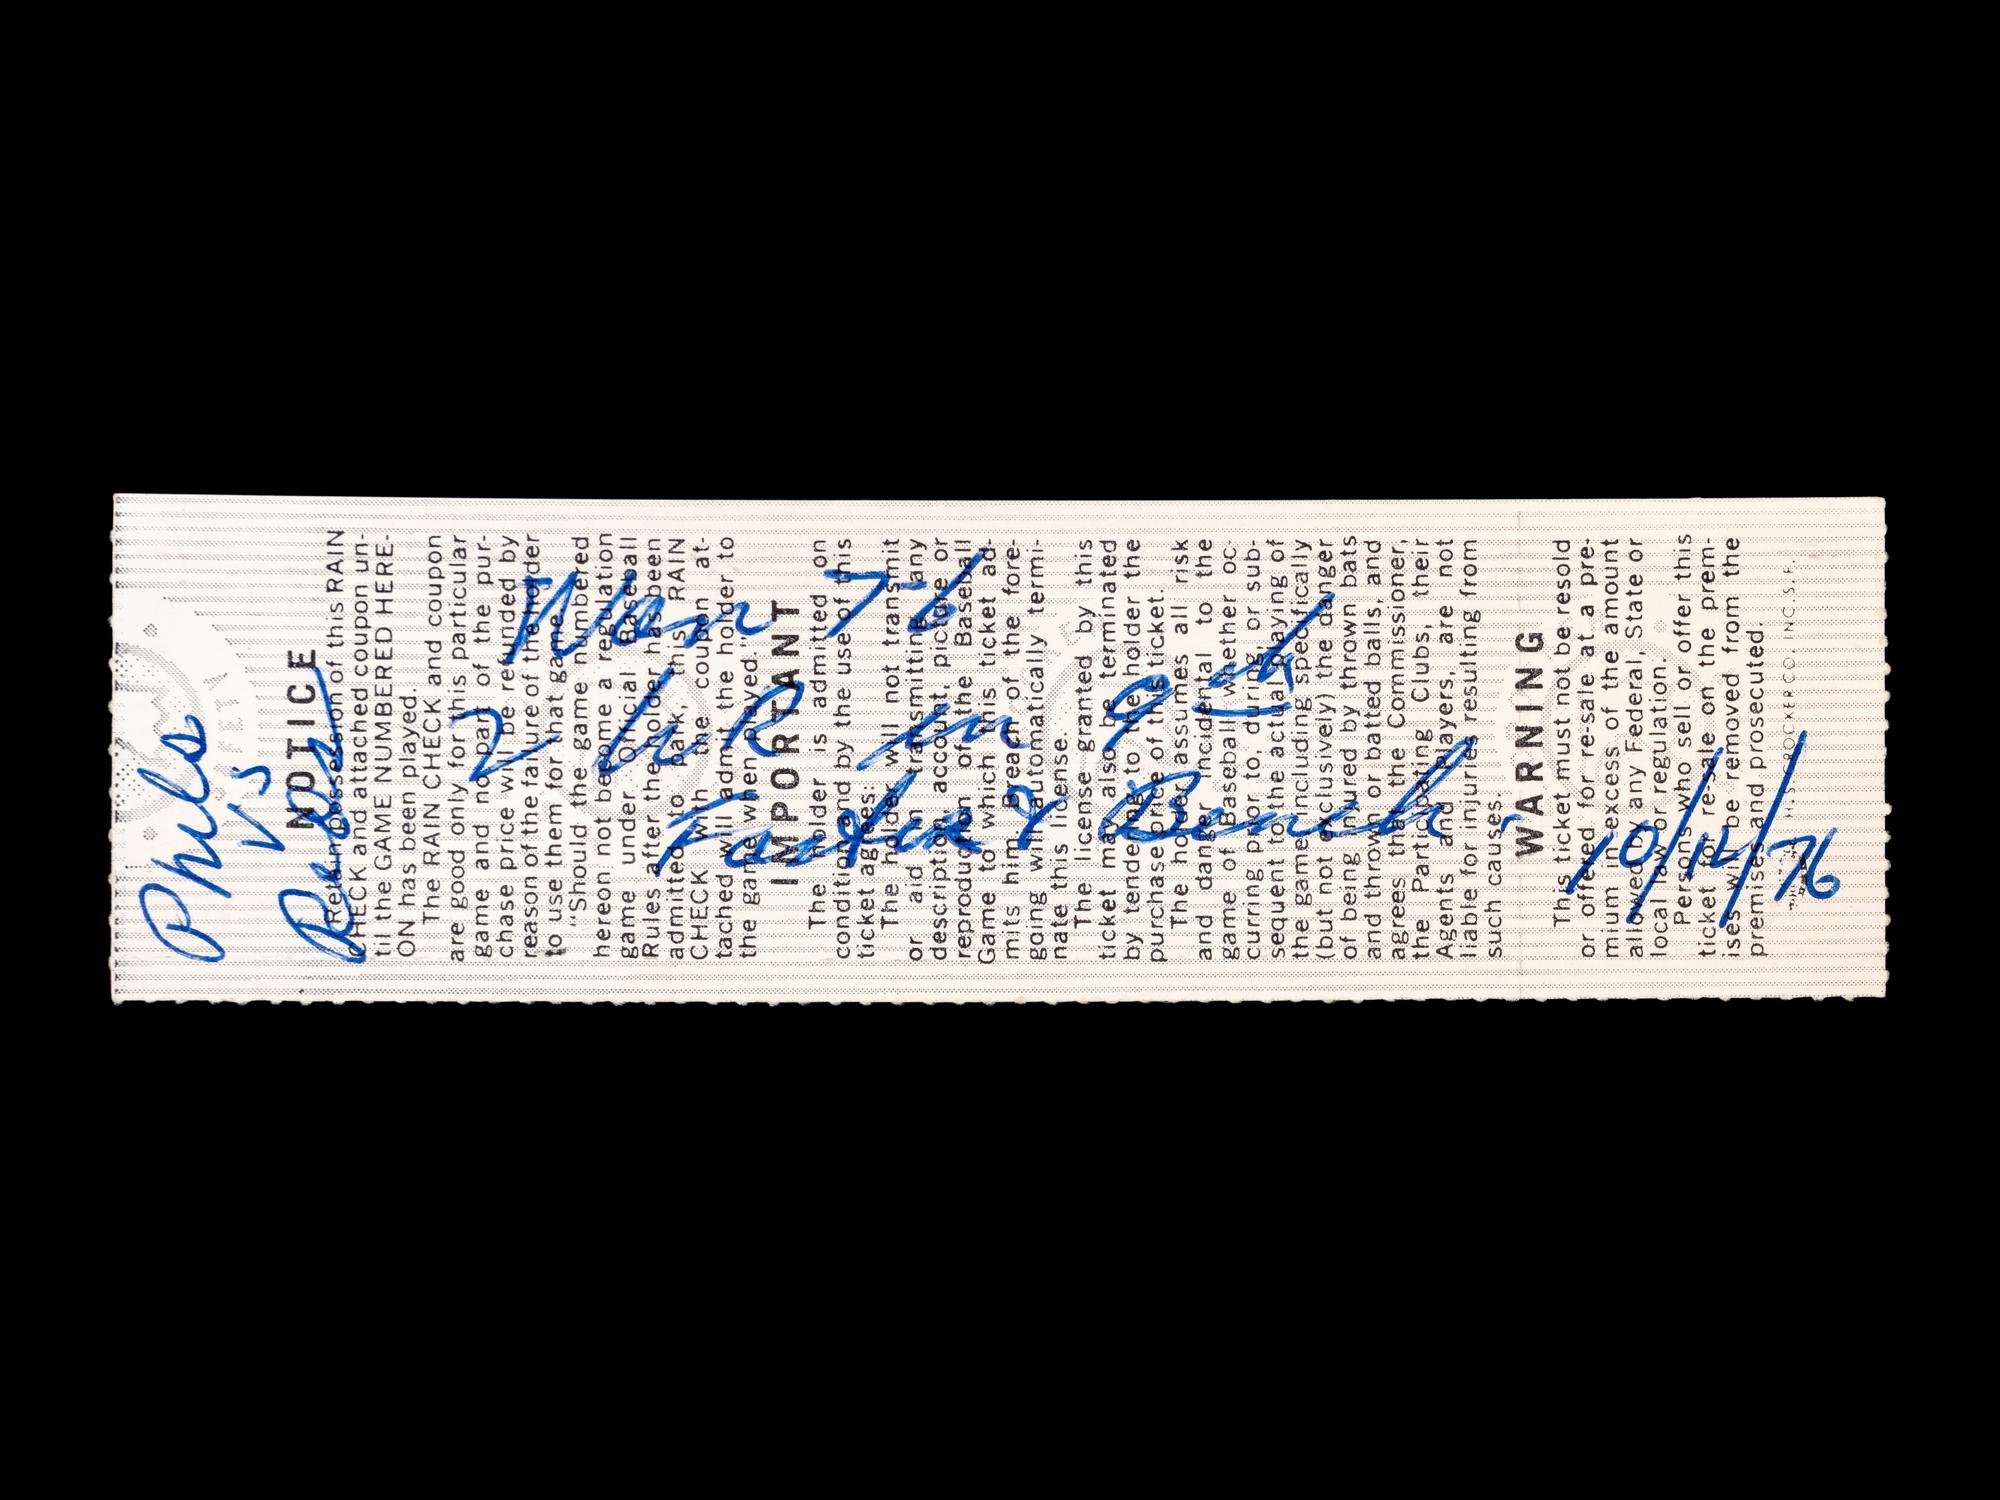 Phils
vs
Reds
Won 7-6
2 hR in 9th
Foster & Bench
10/14/76
NOTICE
Retain possession of this RAIN
CHECK and attached coupon un-
til the GAME NUMBERED HERE-
ON has been played.
The RAIN CHECK and coupon
are good only for this particular
game and no part of the pur-
chase price will be refunded by
reason of the failure of the holder
to use them for that game.
"Should the game numbered
hereon not become a regulation
game under Official Baseball
Rules after the holder has been
admitted to park, this RAIN
CHECK with the coupon at-
tached will admit the holder to
the game when played."
IMPORTANT
The holder is admitted on
condition and by the use of this
ticket agrees:
The holder will not transmit
or aid in transmitting any
description, account, picture or
reproduction of the Baseball
Game to which this ticket ad-
mits him. Breach of the fore-
going will automatically termi-
nate this license.
The license granted by this
ticket may also be terminated
by tendering to the holder the
purchase price of this ticket.
The holder assumes all risk
and danger incidental to the
game of Baseball whether oc-
curring prior to, during, or sub-
sequent to the actual playing of
the game including specifically
(but not exclusively) the danger
of being injured by thrown bats
and thrown or batted balls, and
agrees that the Commissioner,
the Participating Clubs, their
Agents and Players, are not
liable for injuries resulting from
such causes.
WARNING
This ticket must not be resold
or offered for re-sale at a pre-
mium in excess of the amount
allowed by any Federal, State or
local law or regulation.
Persons who sell or offer this
ticket for re-sale on the prem-
ises will be removed from the
premises and prosecuted.
H.S. CROCKER CO. INC. S.F.